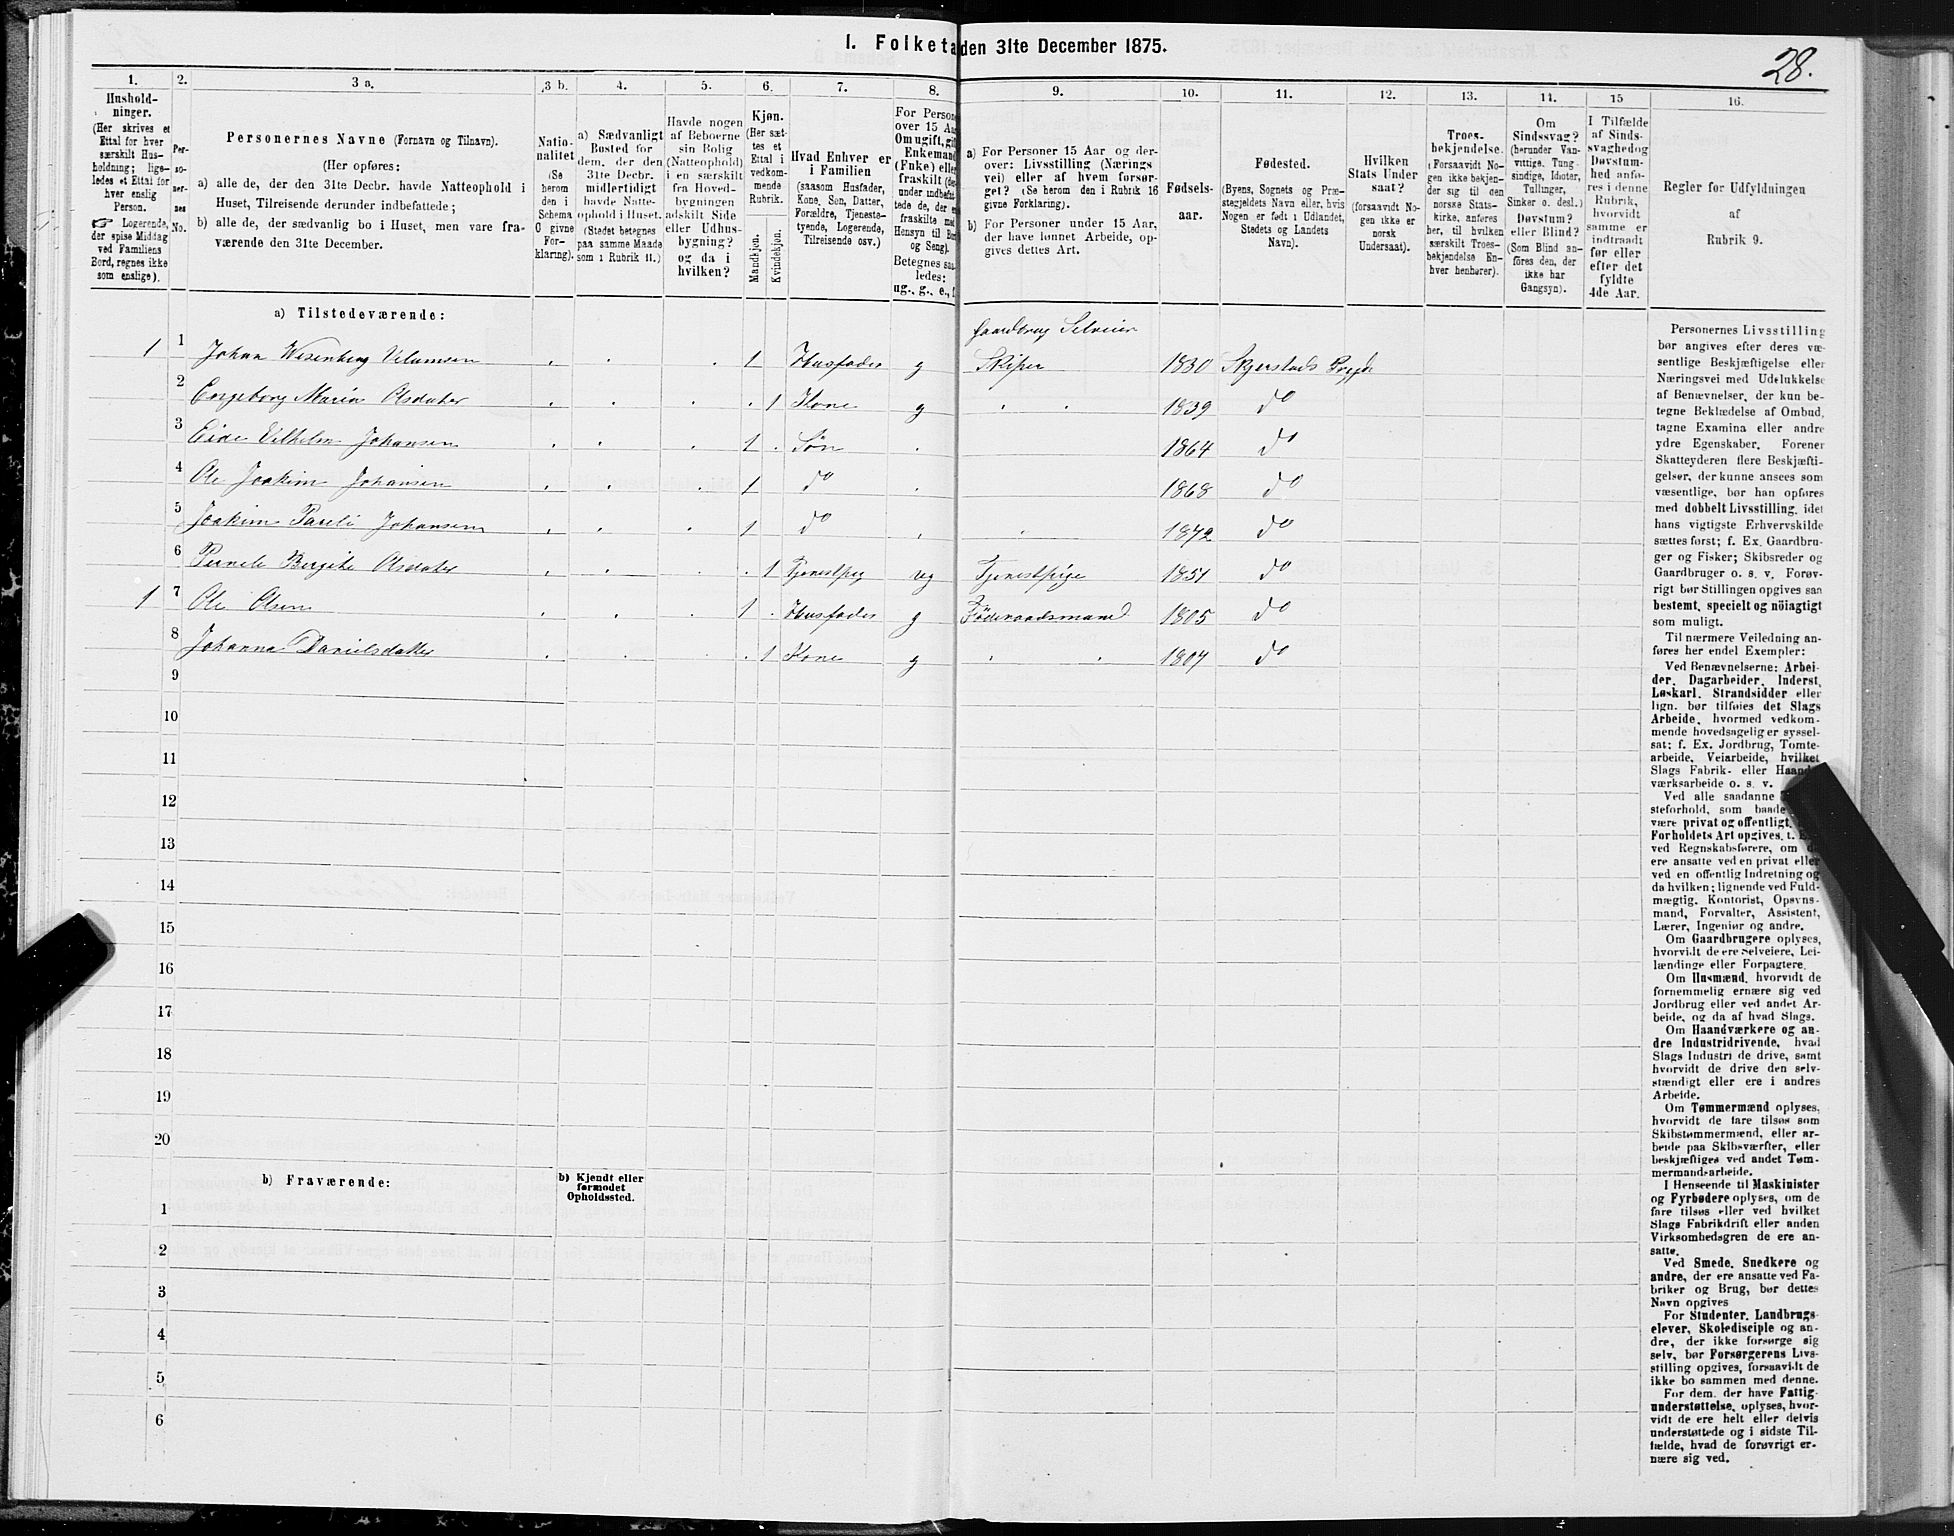 I. Folketæ den 31te December 1875.
28.
1.
Hushold-
ninger.
(Her skrives et
Ettal for hver
særskilt Hus-
holdning; lige-
ledes et Ettal for
hver enslig
Person.
☞ Logerende,
der spise Middag
ved Familiens
Bord, regnes ikke
som enslige).
2.
Per-
so-
ner-
nes
No.
3 a.
Personernes Navne (Fornavn og Tilnavn).
(Her opføres:
a) alle de, der den 31te Decbr. havde Natteophold i
Huset, Tilreisende derunder indbefattede;
b) alle de, der sædvanlig bo i Huset, men vare fra-
værende den 31te December.
3 b.
Natio-
nalitet
(Se
herom
den i
Schema
C givne
For-
klaring).
4.
a) Sædvanligt
Bosted for
dem, der den
31te Decbr.
midlertidigt
havde Natte-
ophold i Huset.
(Stedet betegnes
paa samme Maade
som i Rubrik 11.)
5.
Havde nogen
af Beboerne
sin Bolig
(Natteophold)
i en særskilt
fra Hoved-
bygningen
adskilt Side
eller Udhus-
bygning?
og da i
hvilken?
6.
Kjøn.
(Her sæt-
tes et
Ettal i
vedkom-
mende
Rubrik.
Mandkjøn.
Kvindekjøn.
7.
Hvad Enhver er
i Familien
(saasom Husfader,
Kone, Søn, Datter,
Forældre, Tjeneste-
tyende, Logerende,
Tilreisende osv.)
8.
For Person
over 15 Aa
Om ugift, gif
Enkemand
(Enke) elle
fraskilt (de
under indbefat
tede de, der e
fraskilte med
Hensyn til Bo
og Seng).
Betegnes saa
ledes:
ug., g., e., f
9.
a) For Personer 15 Aar og der-
over: Livsstilling (Nærings
vei) eller af hvem forsør-
get? (Se herom den i Rubrik 16
givne Forklaring).
b) For Personer under 15 Aar,
der have lønnet Arbeide, op-
gives dettes Art.
10.
Fødsels-
aar.
11.
Fødested.
(Byens, Sognets og Præ-
stegjeldets Navn eller, hvis
Nogen er født i Udlandet,
Stedets og Landets
Navn).
12.
Hvilken
Stats Under
saat?
(forsaavidt No-
gen ikke er
norsk
Undersaat).
13.
Troes-
bekjendelse.
(Forsaavidt No-
gen ikke bekjen-
der sig til den
norske Stats-
kirke, anføres
her, til hvilken
særskilt Troes-
bekjendelse En-
hver henhører).
14.
Om
Sindssvag?
(herunder Van-
vittige, Tung-
sindige, Idioter,
Tullinger,
Sinker o. desl.)
Døvstum?
eller Blind?
(Som Blind an-
føres den, der
ikke har
Gangsyn).
15
I Tilfælde
af Sinds-
svaghed og
Døvstum-
hed anfø-
res i denne
Rubrik,
hvorvidt
samme er
indtraadt
før eller
efter det
fyldte
4de Aar.
16.
Regler for Udfyldningen
af
Rubrik 9.
a) Tilstedeværende:
Gaardbrug Selveier
1 1 Johan Wesenberg Vilumsen 1 Husfader g Skiper 1830 Skjerstads
2 Engeborg Maria Olsdater 1 Kone g 1839 do
3 Eide Vilhelm Johansen 1 Søn 1864 do
4 Ole Joakim Johansen 1 do 1868 do
5 Joakim Pareli Johansen 1 do 1872 do
6 Pernele Bergite Olsdater 1 Tjenestpig ug Tjenestpige 1851 do
1 7 Ole Olsen 1 Husfader g Föderaadsmand 1805 do
8 Johanna Danielsdatter 1 Kone g 1807 do
9
10
11
12
13
14
15
16
17
18
19
20
b) Fraværende:
b) Kjendt eller
formodet
Opholdssted.
1
2
3
4
5
6
Personernes Livsstilling
bør angives efter deres væ-
sentlige Beskjæftigelse eller
Næringsvei med Udelukkelse
af Benævnelser, der kun be-
tegne Beklædelse af Ombud,
tagne Examina eller andre
ydre Egenskaber. Forener
Skatteyderen flere Beskjæfti-
gelser, der kunne ansees som
væsentlige, bør han opføres
med dobbelt Livsstilling, idet
hans vigtigste Erhvervskilde
sættes først; f. Ex. Gaardbru-
ger og Fisker; Skibsreder og
Gaardbruger o. s. v. Forøv-
rigt bør Stillingen opgives saa
bestemt, specielt og nöiagtigt
som muligt.
Til nærmere Veiledning an-
føres her endel Exempler:
Ved Benævnelserne: Arbei-
der, Dagarbeider, Inderst,
Løskarl, Strandsidder eller
lign. bør tilføies det Slags
Arbeide, hvormed vedkom-
mende hovedsagelig er syssel-
sat; f. Ex. Jordbrug, Tomte-
arbeide, Veiarbeide, hvilket
Slags Fabrik- eller Haand-
værksarbeide o. s. v.
Ved alle saadanne
steforhold, som baade
være privat og offentligt,
Forholdets Art opgives, t. E
ved Regnskabsførere, om d
ere ansatte ved en privat eller
ved en offentlig Indretning og
da hvilken; lignende ved Fuld-
mægtig, Kontorist, Opsyns-
mand, Forvalter, Assistent,
Lærer, Ingeniør og andre.
Om Gaardbrugere oplyses,
hvorvidt de ere Selveiere, Lei-
lændinge eller Forpagtere.
Om Husmænd, hvorvidt de
fornemmelig ernære sig ved
Jordbrug eller ved andet Ar-
beide, og da af hvad Slags.
Om Haandværkere og an-
dre Industridrivende, hvad
Slags Industri de drive, samt
hvorvidt de drive den selv-
stændigt eller ere i andres
Arbeide.
Om Tømmermænd oplyses,
hvorvidt de fare tilsøs som
Skibstømmermænd, eller ar-
beide paa Skibsværfter, eller
beskjæftiges ved andet Tøm-
mermandsarbeide.
I Henseende til Maskinister
og Fyrbødere oplyses, om de
fare tilsøs eller ved hvilket
Slags Fabrikdrift eller anden
Virksomhedsgren de ere an-
satte.
Ved Smede, Snedkere og
andre, der ere ansatte ved Fa-
briker og Brug, bør dettes
Navn opgives
For Studenter, Landbrugs-
elever, Skoledisciple og an-
dre, der ikke forsørge sig
selv, bør Forsørgerens Livs-
stilling opgives, forsaavidt de
ikke bo sammen med denne.
For dem, der have Fattig-
understøttelse, oplyses, hvor-
vidt de ere helt eller delvis
understøttede og i sidste Til-
fælde, hvad de forøvrigt er-
nære sig ved.